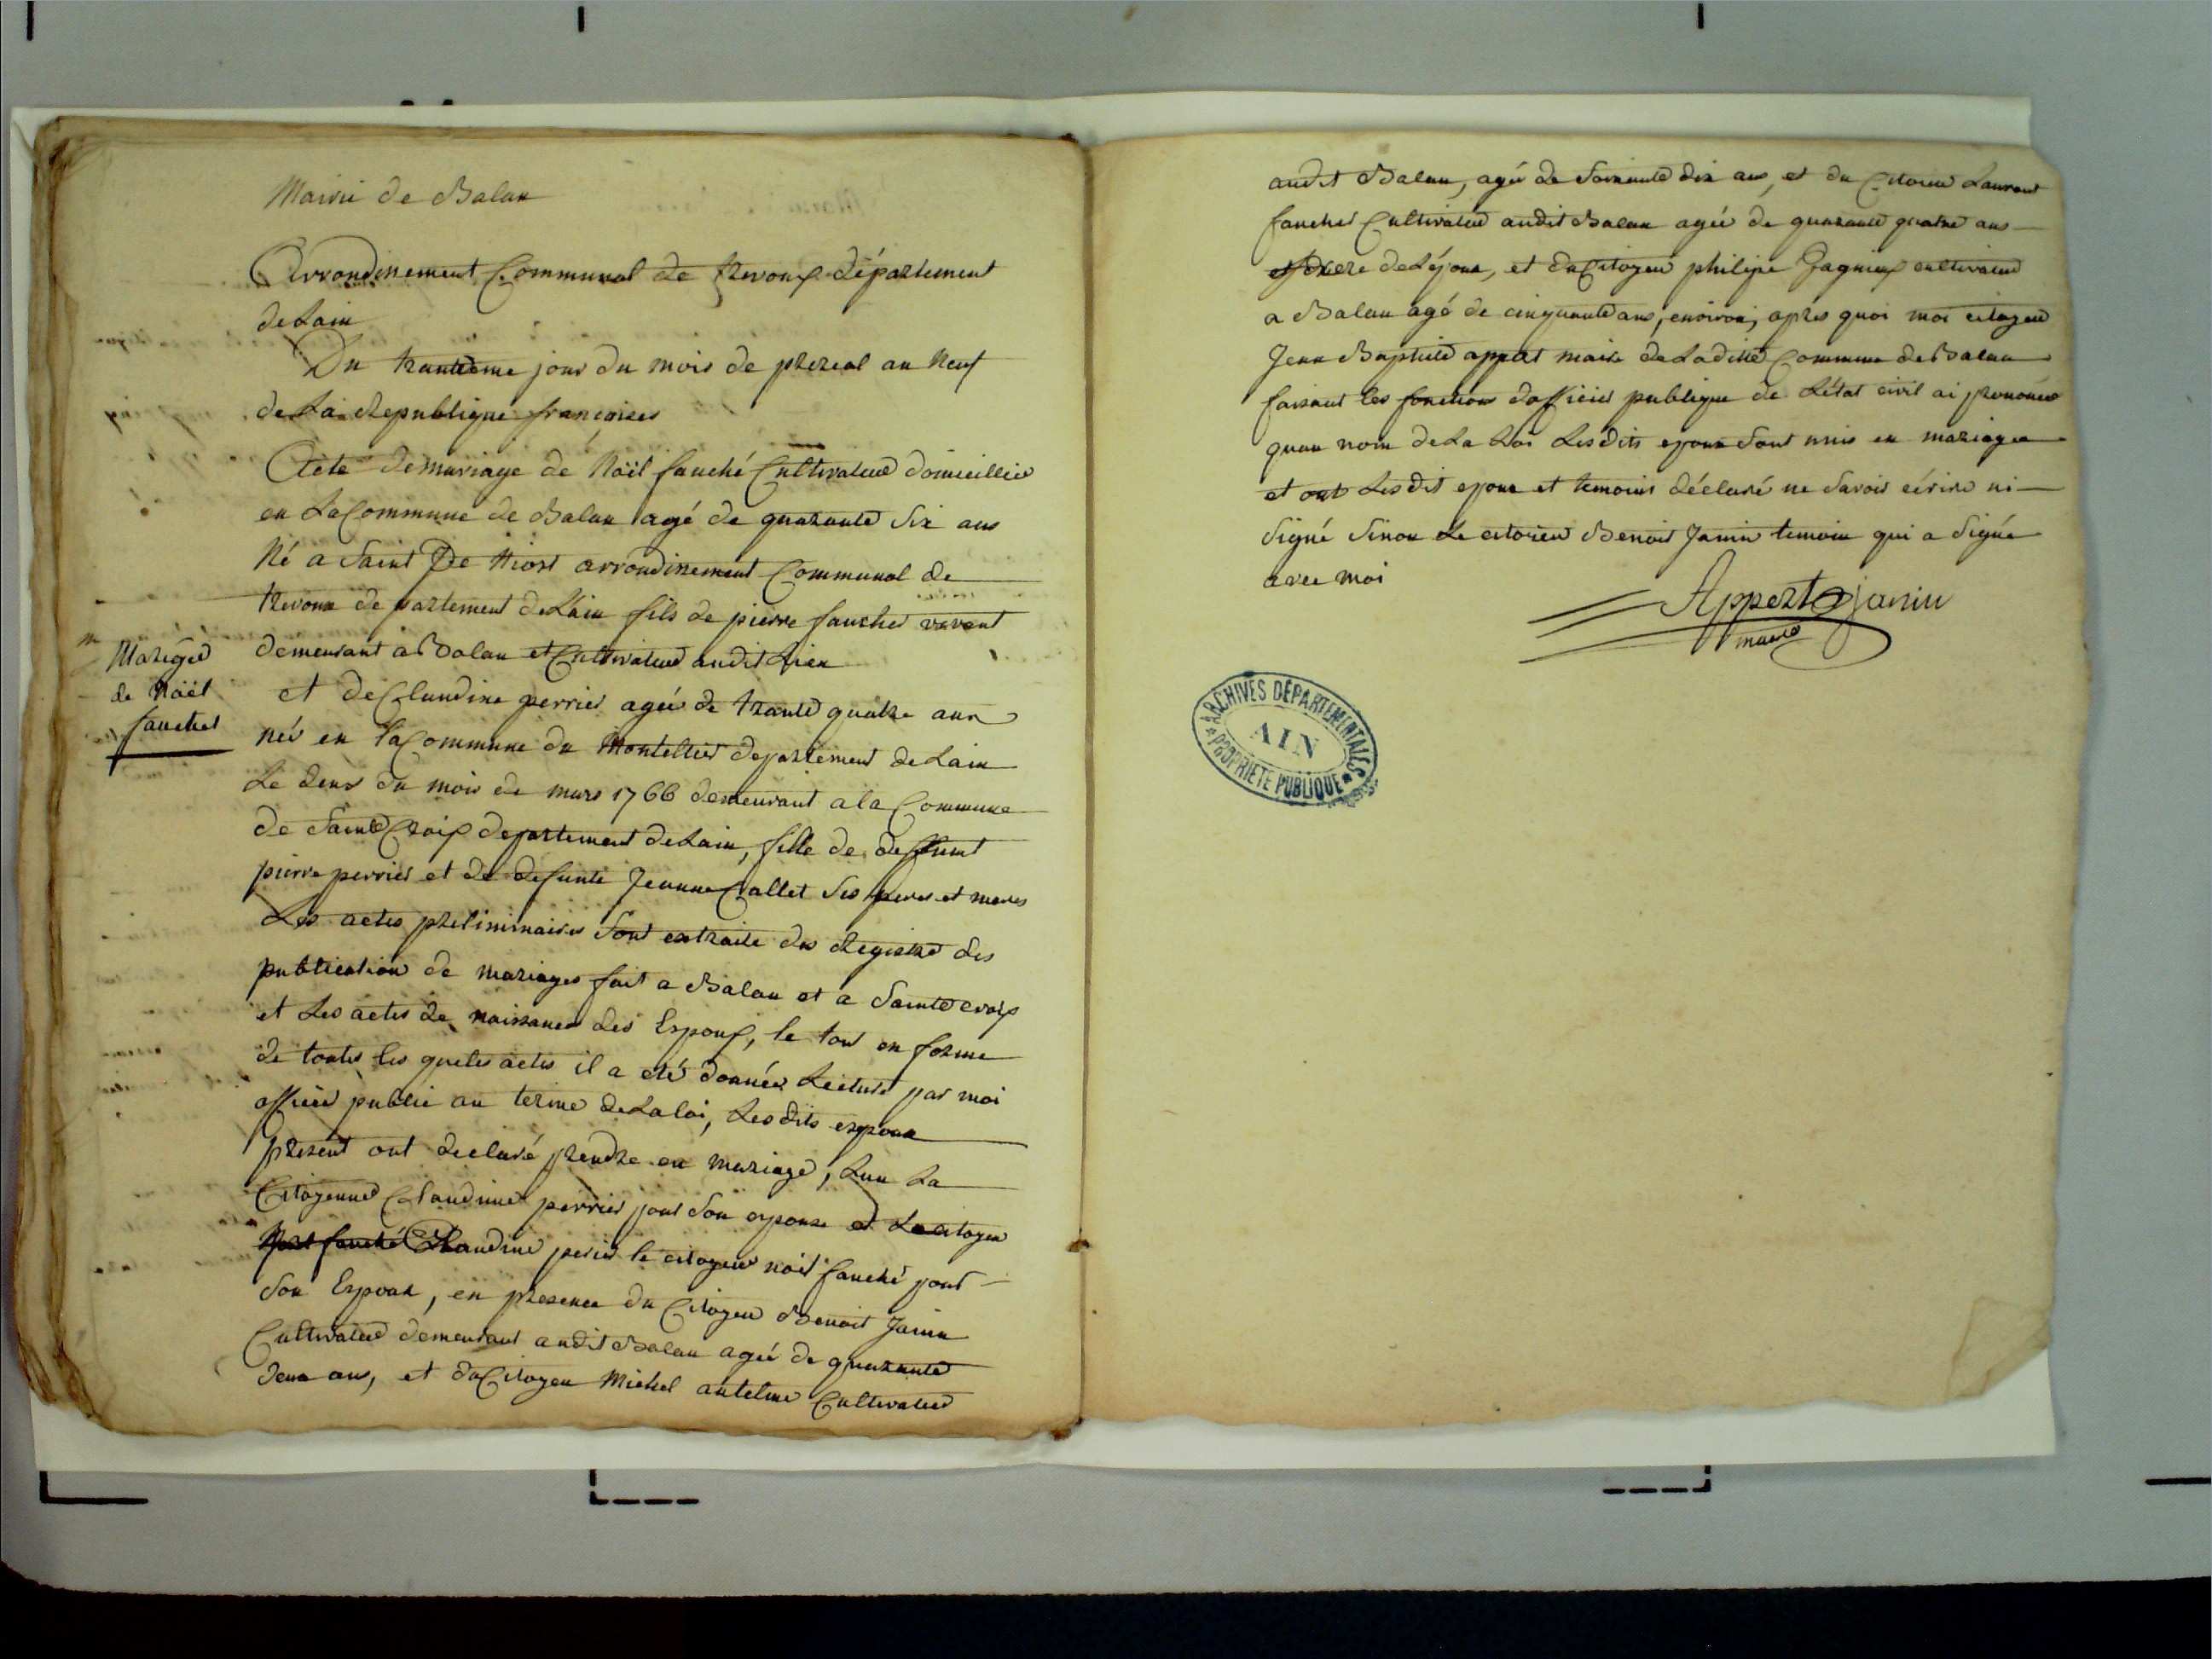 Mairie de Balan
Arrondissement Communal de trevoux département
de Lain
Du trantième jour du mois de prereal an Neuf
de La Republique françoises
Acte de mariage de Noël fauché Cultivateur domicillié
en La Commune de Balan agé de quarante six ans
Né a Saint De Niost arrondissement Communal de
trevoux departement de Lain fils de pierre faucher vivant
demeurant a Balan et Cultivateur audit Lieu
et de Claudine perrier ageé de trante quatre ans
neé en la Commune du Montellier departement de Lain
Le deux du mois de mars 1766 demeurant a la Commune
de Sainte Croix departement de Lain, fille de deffunt
pierre perrier et de defunte Jeanne Callet ses peres et meres
Les actes preliminaires sont extraite du Registre des
publication de mariages fait a Balan et a Sainte croix
et Les actes de naissance des Espoux, le tout en forme
de toutes les queles actes il a été donnée Lecture par moi
officier public au terme de La loi, Les dits espoux
present ont declaré prendre en mariage, Lun La
Citoyenne Claudine perrier pour son espouse et Le citoyen
Noel fauché Claudine perier le citoyen noël fauché pour
son Espoux, en presence du Citoyen Benoit Janin
Cultivateur demeurant audit Balan ageé de quarante
deux ans, et du Citoyen Michel antelme Cultivateur
Mariage
de Noël
faucher
audit Balan, ageé de soixante dix ans, et du Citoien Laurent
faucher Cultivateur audit Balan ageé de quarante quatre ans
et frere de Lépoux, et du Citoyen philipe Gagnieux cultivateur
a Balan agé de cinquante ans, environ, après quoi moi citoyen
Jean Baptiste appert maire de Laditte Commune de Balan
faisant les fonctions dofficier publique de Létat civil ai prononcé
quau nom de La Loi Les dits epoux sont unis en mariage
et ont Les dit epoux et temoins déclaré ne savoir écrire ni
signé sinon Le citoien Benoit Janin temoin qui a signé
avec moi
Appert Janin
maire
ARCHIVES DÉPARTEMENTALES
AIN
* PROPRIETE PUBLIQUE *